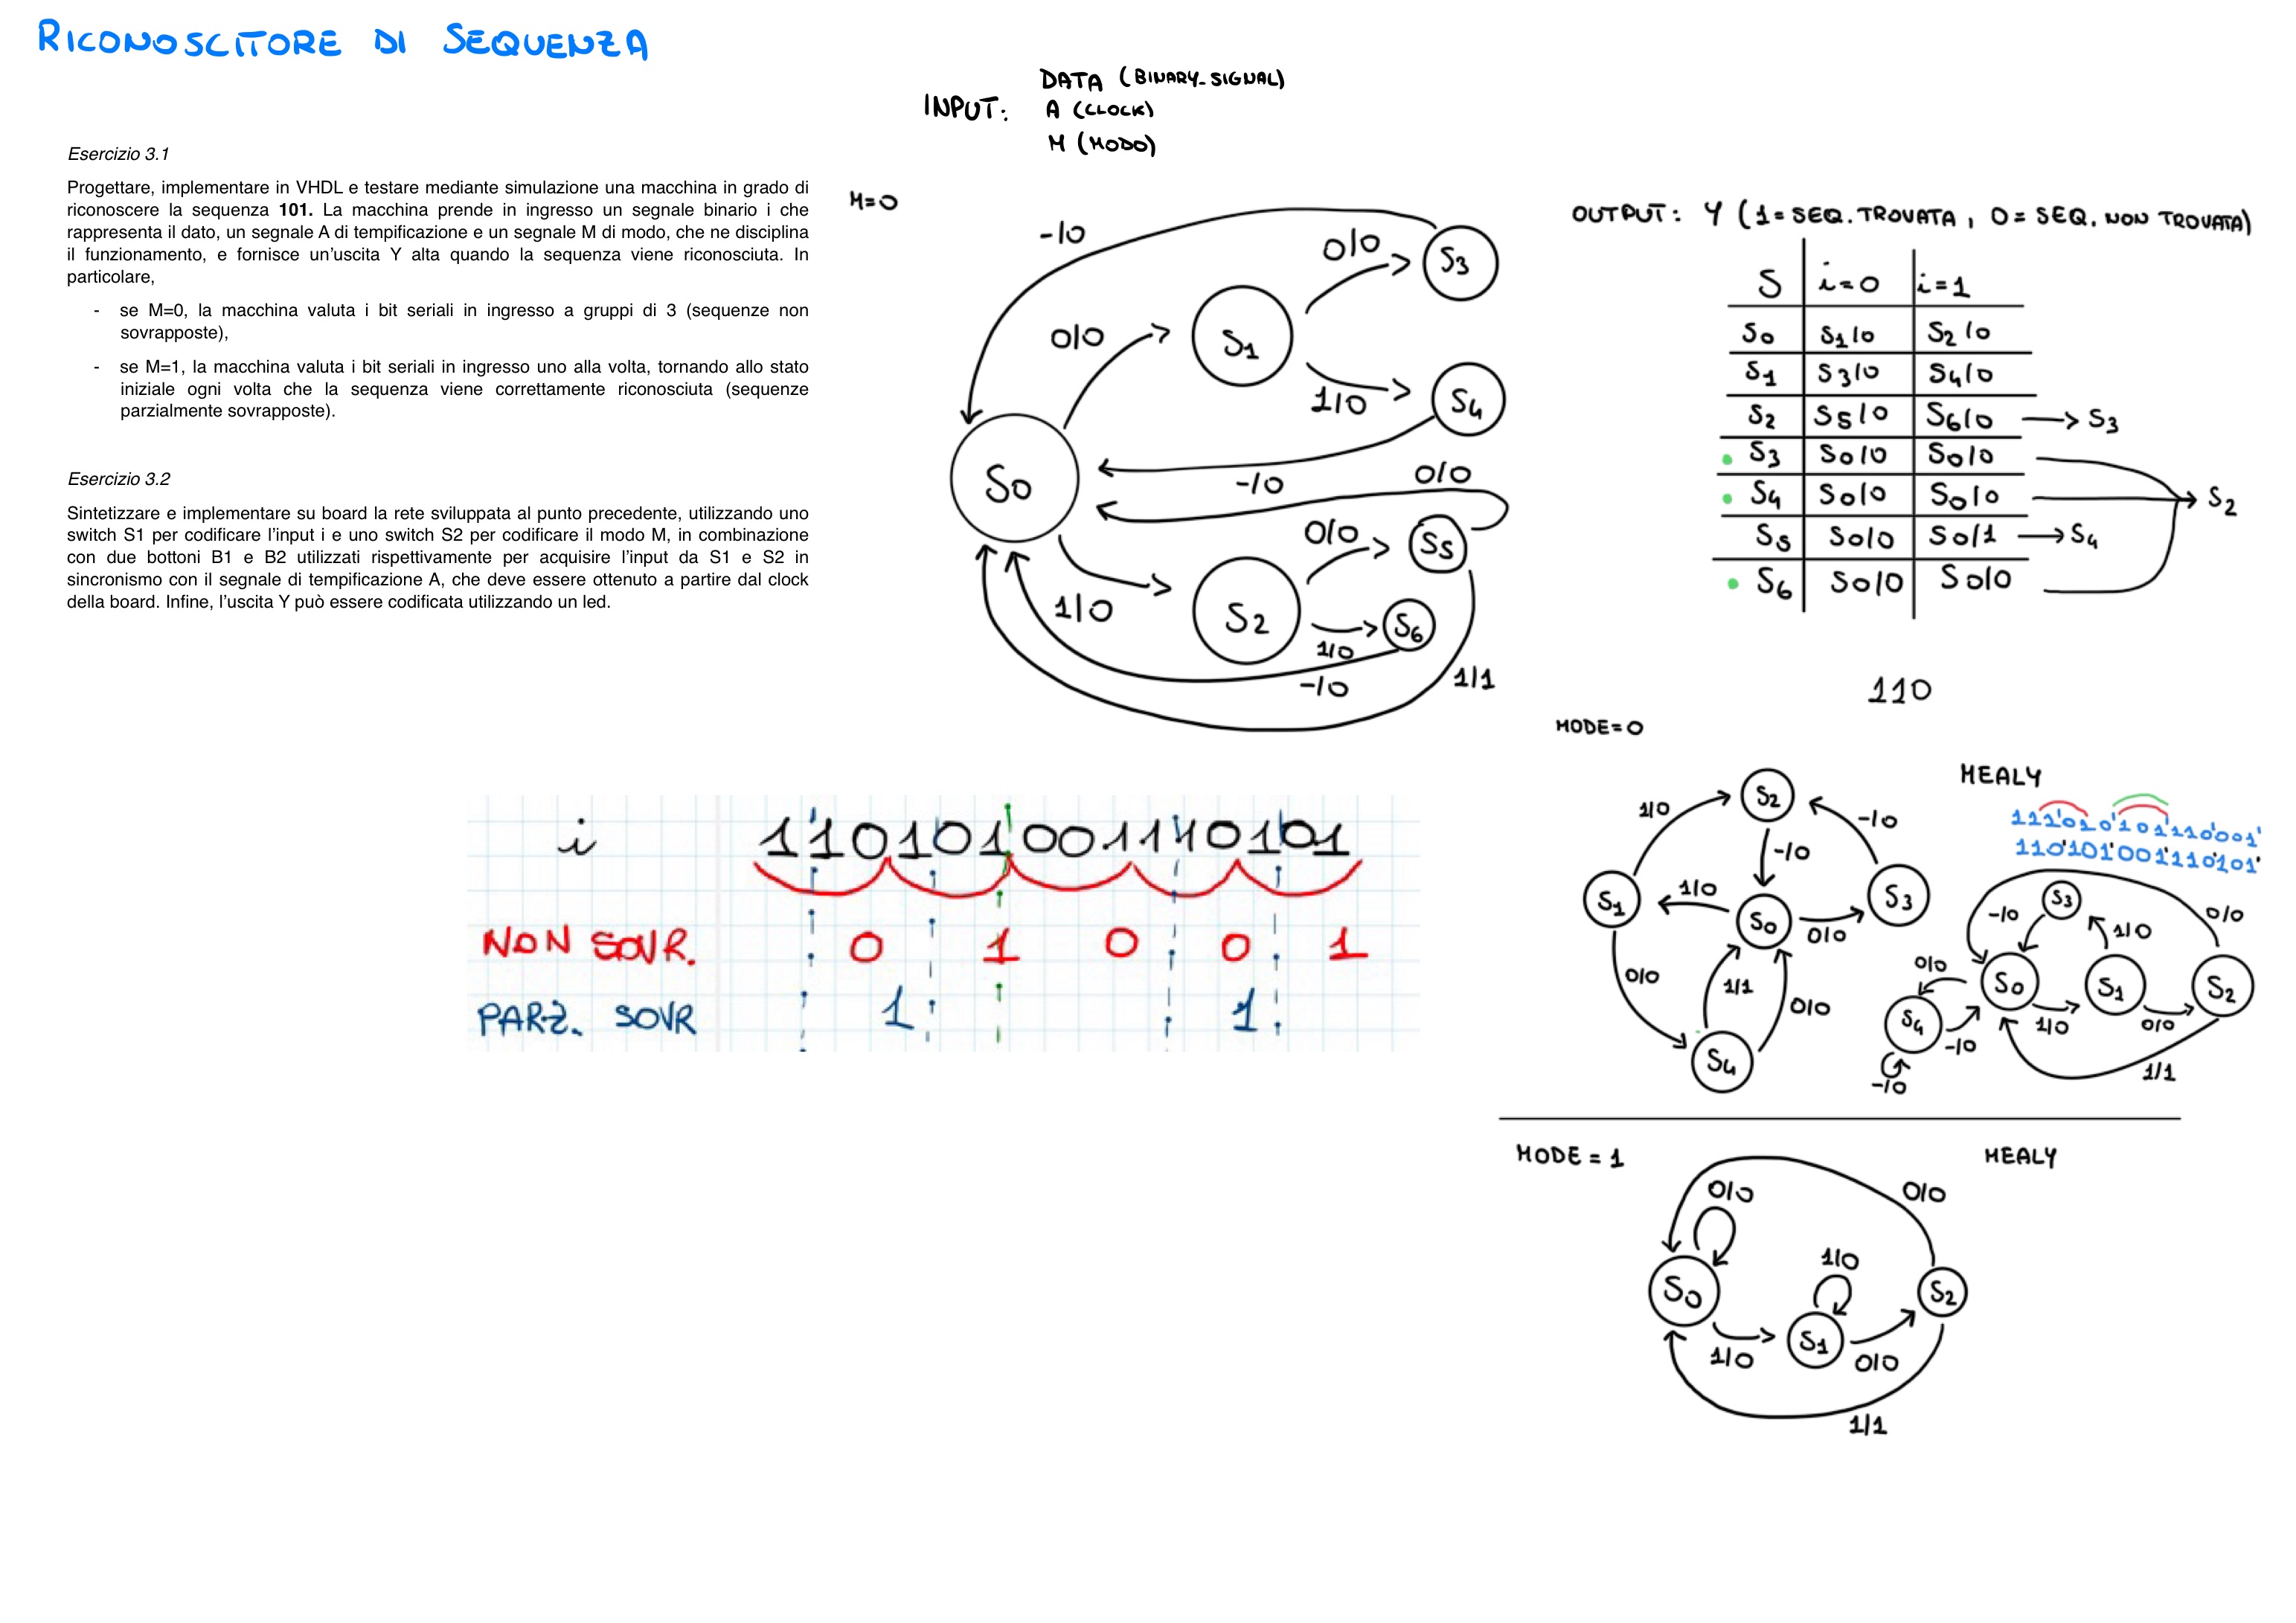 RICONOSCITORE DI SEQUENZA
Esercizio 3.1
Progettare, implementare in VHDL e testare mediante simulazione una macchina in grado di
riconoscere la sequenza 101. La macchina prende in ingresso un segnale binario i che
rappresenta il dato, un segnale A di tempificazione e un segnale M di modo, che ne disciplina
il funzionamento, e fornisce un'uscita Y alta quando la sequenza viene riconosciuta. In
particolare,
- se M=0, la macchina valuta i bit seriali in ingresso a gruppi di 3 (sequenze non
sovrapposte),
- se M=1, la macchina valuta i bit seriali in ingresso uno alla volta, tornando allo stato
iniziale ogni volta che la sequenza viene correttamente riconosciuta (sequenze
parzialmente sovrapposte).
Esercizio 3.2
Sintetizzare e implementare su board la rete sviluppata al punto precedente, utilizzando uno
switch S1 per codificare l'input i e uno switch S2 per codificare il modo M, in combinazione
con due bottoni B1 e B2 utilizzati rispettivamente per acquisire l'input da S1 e S2 in
sincronismo con il segnale di tempificazione A, che deve essere ottenuto a partire dal clock
della board. Infine, l'uscita Y può essere codificata utilizzando un led.
INPUT:
DATA (BINARY_SIGNAL)
A (CLOCK)
M (MODO)
M=0
-/0
0/0
S3
0/0
S1
1/0
S4
S0
-/0
0/0
0/0
S5
1/0
S2
1/0
S6
-/0
1/1
OUTPUT: Y (1=SEQ.TROVATA, 0=SEQ. NON TROVATA)
S i=0 i=1
S0 S1/0 S2/0
S1 S3/0 S4/0
S2 S5/0 S6/0 → S3
S3 S0/0 S0/0
S4 S0/0 S0/0 → S2
S5 S0/0 S0/1 → S4
S6 S0/0 S0/0
110
i 110101001110101
NON SOVR. 0 1 0 0 1
PARZ. SOVR 1 1
MODE=0
S2
1/0
-/0
-/0
S1
1/0
S0
0/0
S3
0/0
1/1
0/0
S4
MEALY
111'010'101'110'001'
110'101'001'110'101'
S3
-/0
1/0
0/0
0/0
S0
S1
S2
S4
-/0
1/0
0/0
-/0
1/1
MODE = 1
MEALY
0/0
0/0
1/0
S0
S2
S1
1/0
0/0
1/1